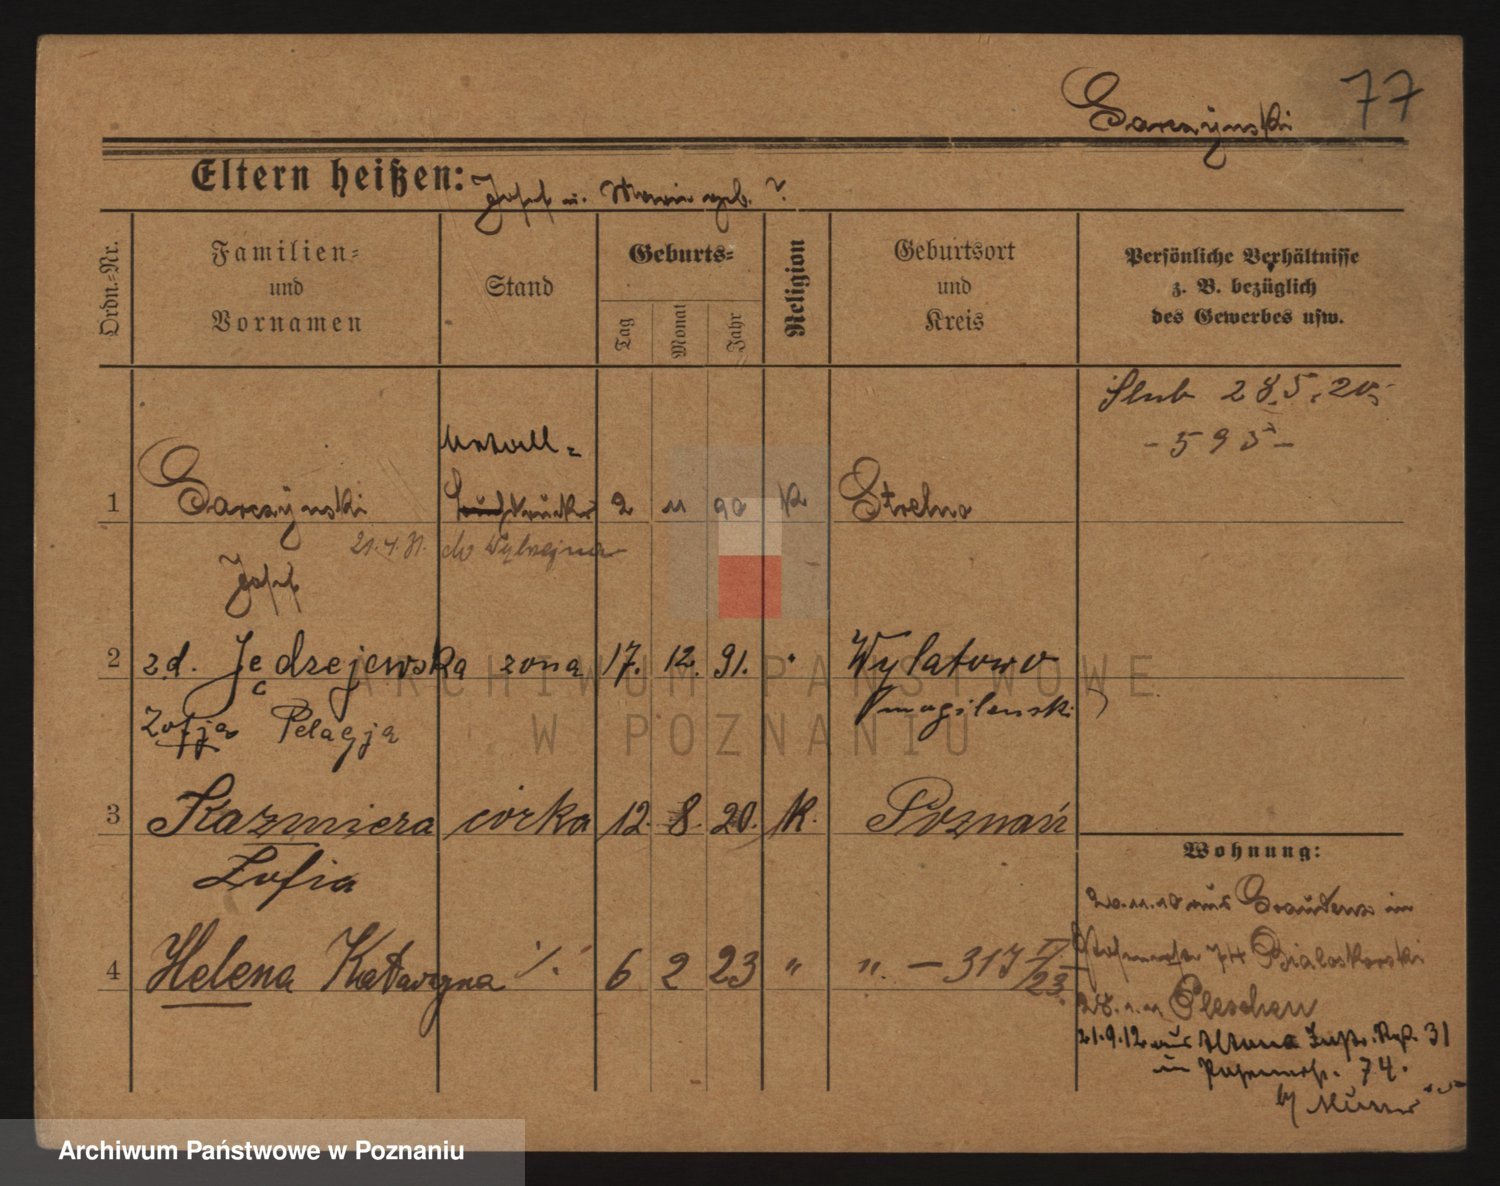 77
Garczyński
Eltern heißen: Josef u. Marie geb. ?
Ordn.-Nr.
Familien-
und
Vornamen
Stand
Geburts-
Tag
Monat
Jahr
Religion
Geburtsort
und
Kreis
Persönliche Verhältnisse
z. B. bezüglich
des Gewerbes usw.
Slub 28.5.20
- 595 -
Metall-
1 Garczyński 2 11 90 K Strelno
21.4.31. do
Josef
2 zd. Jędrzejewska żona 17. 12. 91. " Wylatowo
Zofja Pelagja mogilenski
3 Kazmiera córka 12. 8. 20. K. Poznań
Zofia
4 Helena Katarzyna ./. 6 2 23 " " - 317 II/23.
Wohnung:
20.11.10 aus Graudenz in
74 Bialoskorski
Pleschen
21.9.12 aus Altona Inftr. Rgt. 31
in Posenerstr. 74.
ARCHIWUM PAŃSTWOWE
W POZNANIU
Archiwum Państwowe w Poznaniu